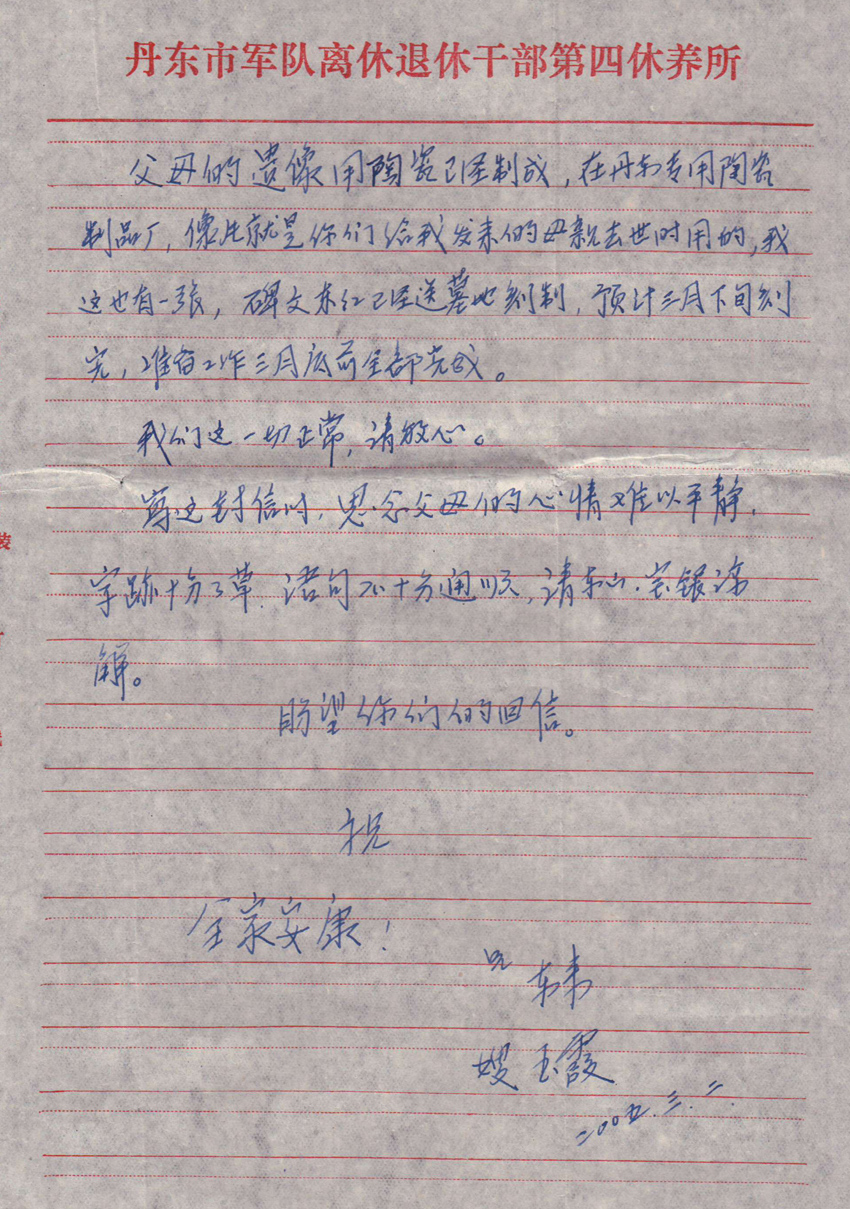 丹东市军队离休退休干部第四休养所
父母的遗像用陶瓷已经制成，在丹东专用陶瓷
制品厂，像片就是你们给我发来的母亲去世时用的，我
这也有一张，碑文东红已经送墓地刻制，预计三月下旬刻
完，准备工作三月底前全部完成。
我们这一切正常，请放心。
写这封信时，思念父母们的心情难以平静，
字跡十分了草，语句不十分通顺，请东山、宝银谅
解。
盼望你们的回信。
祝
全家安康！
兄 东
嫂 玉霞
二00五.三.二.
装